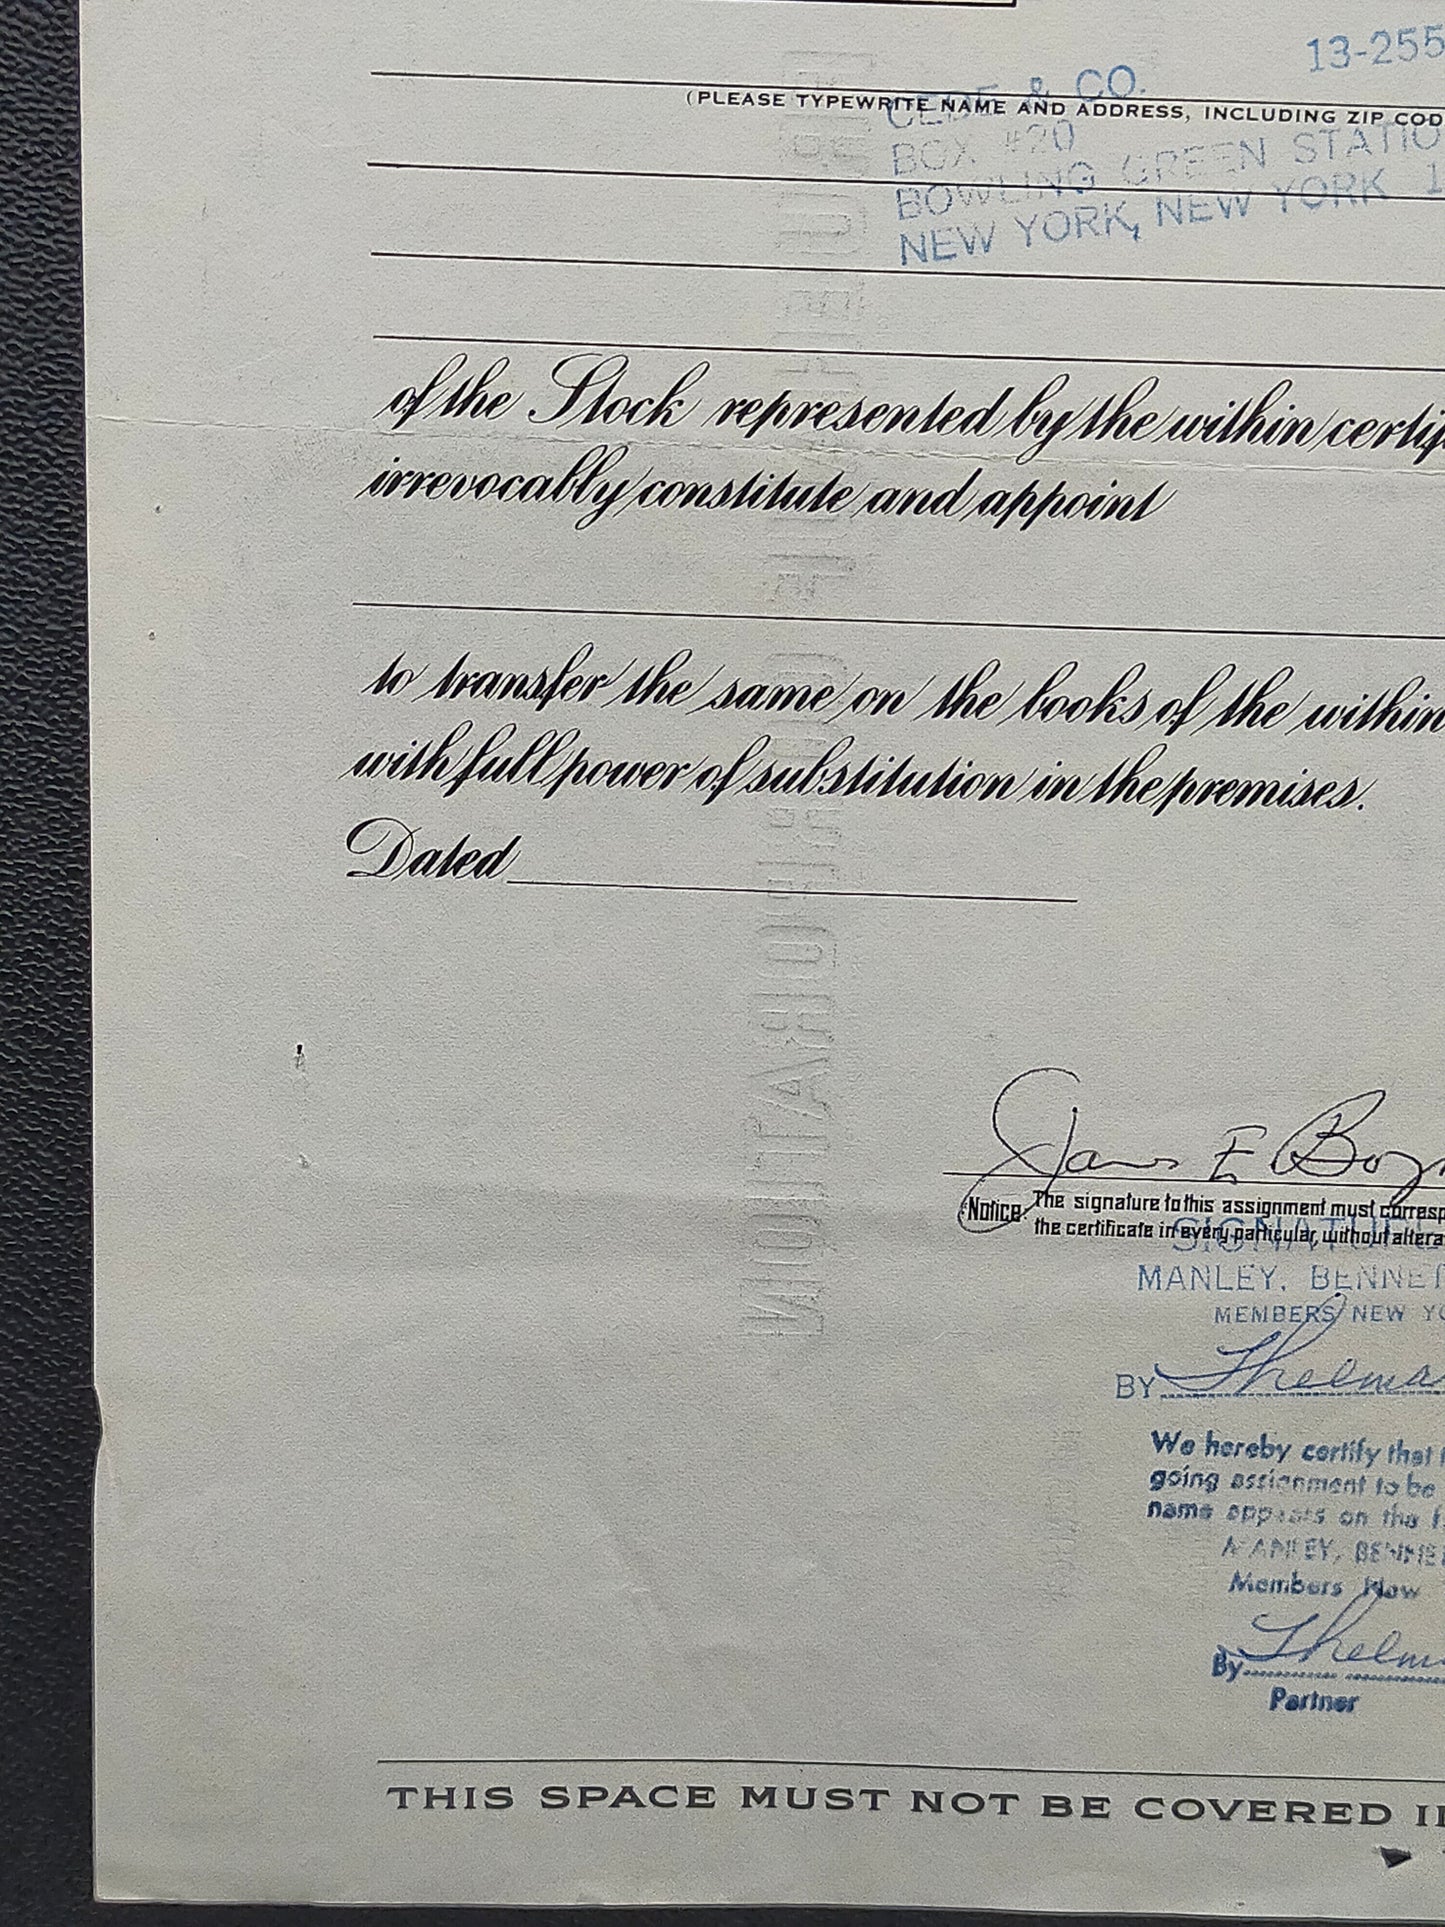 13-255
CEDE & CO.
(PLEASE TYPEWRITE NAME AND ADDRESS, INCLUDING ZIP COD
BOX #20
BOWLING GREEN STATIO
NEW YORK, NEW YORK 1
of the Stock represented by the within certif
irrevocably constitute and appoint
to transfer the same on the books of the within
with full power of substitution in the premises.
Dated
James E Boy
Notice: The signature to this assignment must corresp
the certificate in every particular, without altera
SIGNATURE
MANLEY, BENNET
MEMBERS NEW YO
BY Thelma
We hereby certify that
going assignment to be
name appears on the f
MANLEY, BENNE
Members New
By Thelm
Partner
THIS SPACE MUST NOT BE COVERED I